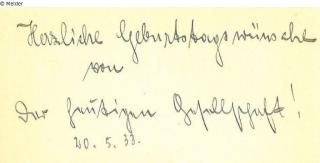 © Melder
Herzliche Geburtstagswünsche
von
Der heutigen Gesellschaft!
20. 5. 33.